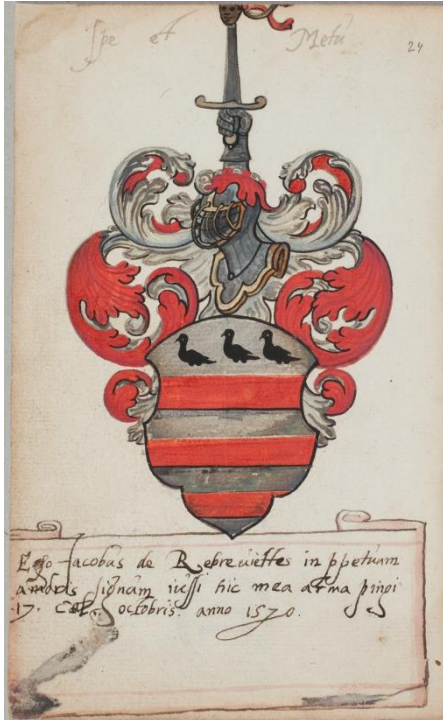 Spe et Metu
24
Ego Jacobus de Rebreviettes in ppetuum
amoris signum iussi hic mea arma pingi
17. Cal. octobris. anno 1570.